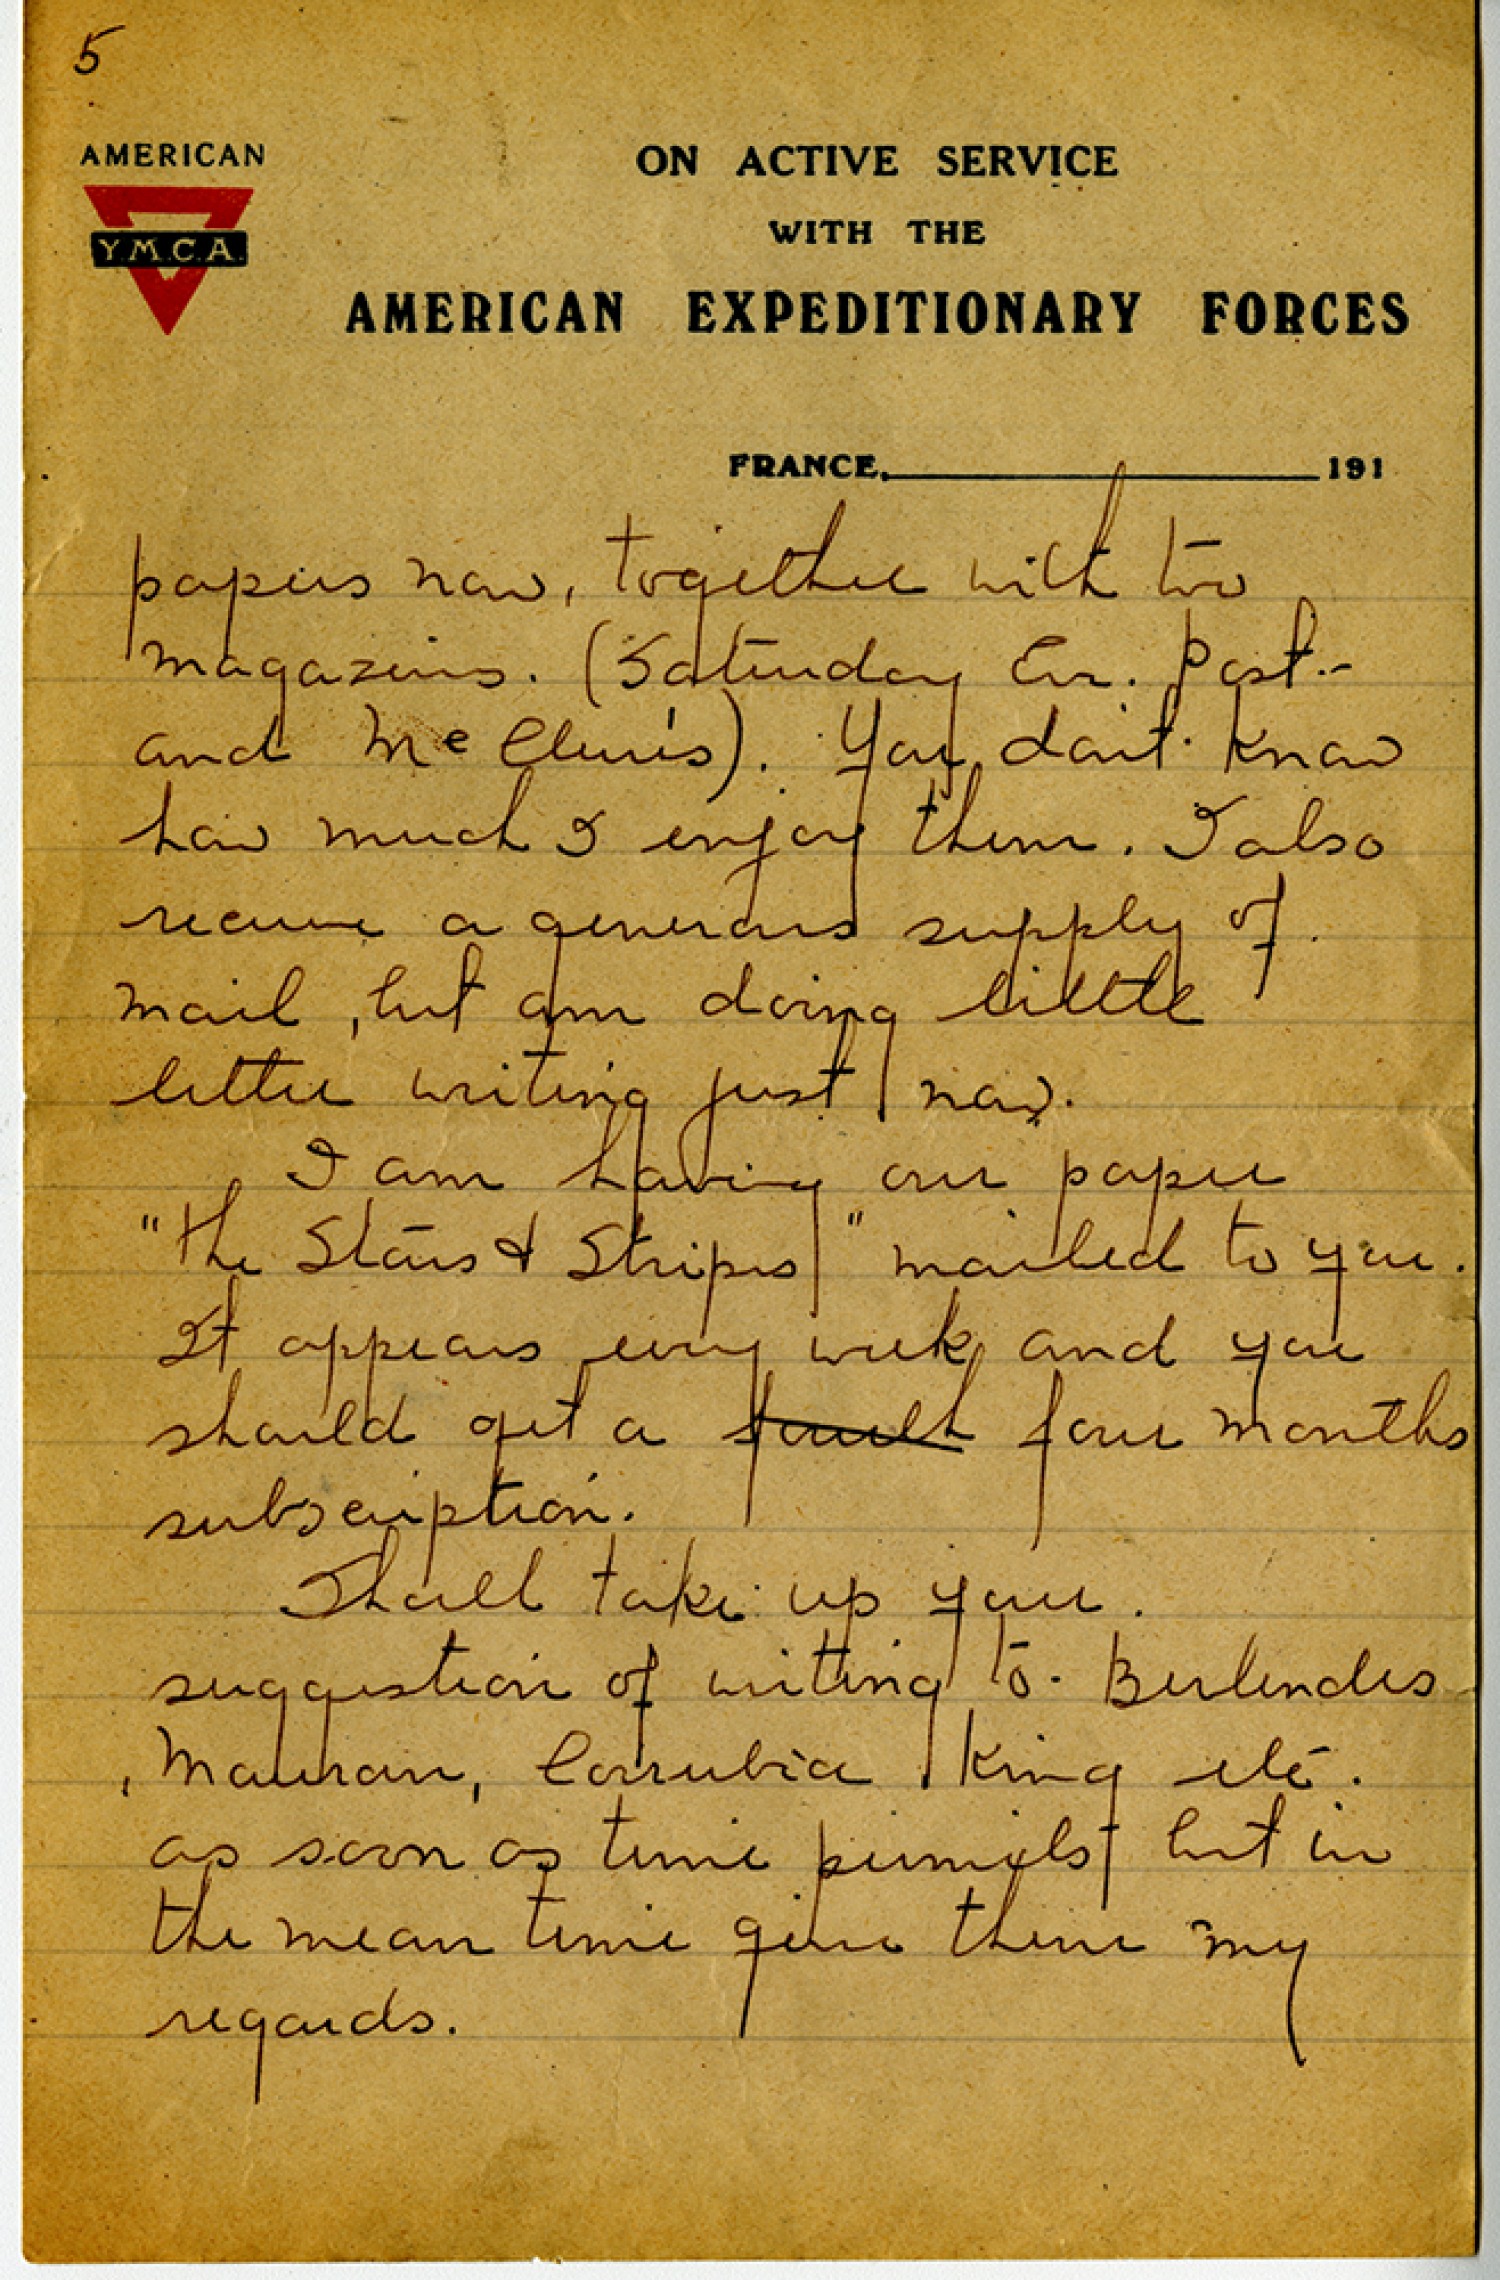 5
AMERICAN
Y.M.C.A.
ON ACTIVE SERVICE
WITH THE
AMERICAN EXPEDITIONARY FORCES
FRANCE, 191
papers now, together with two
magazines. (Saturday Ev. Post.-
and McClure's). You don't know
how much I enjoy them. I also
receive a generous supply of
mail, but am doing little
letter writing just now.
I am having our paper
"the Stars & Stripes" mailed to you.
It appears every week and you
should get a fourth four months
subscription.
Shall take up your
suggestion of writing to Berlendes
, Mauran, Corrubia, King etc.
as soon as time permits, but in
the mean time give them my
regards.